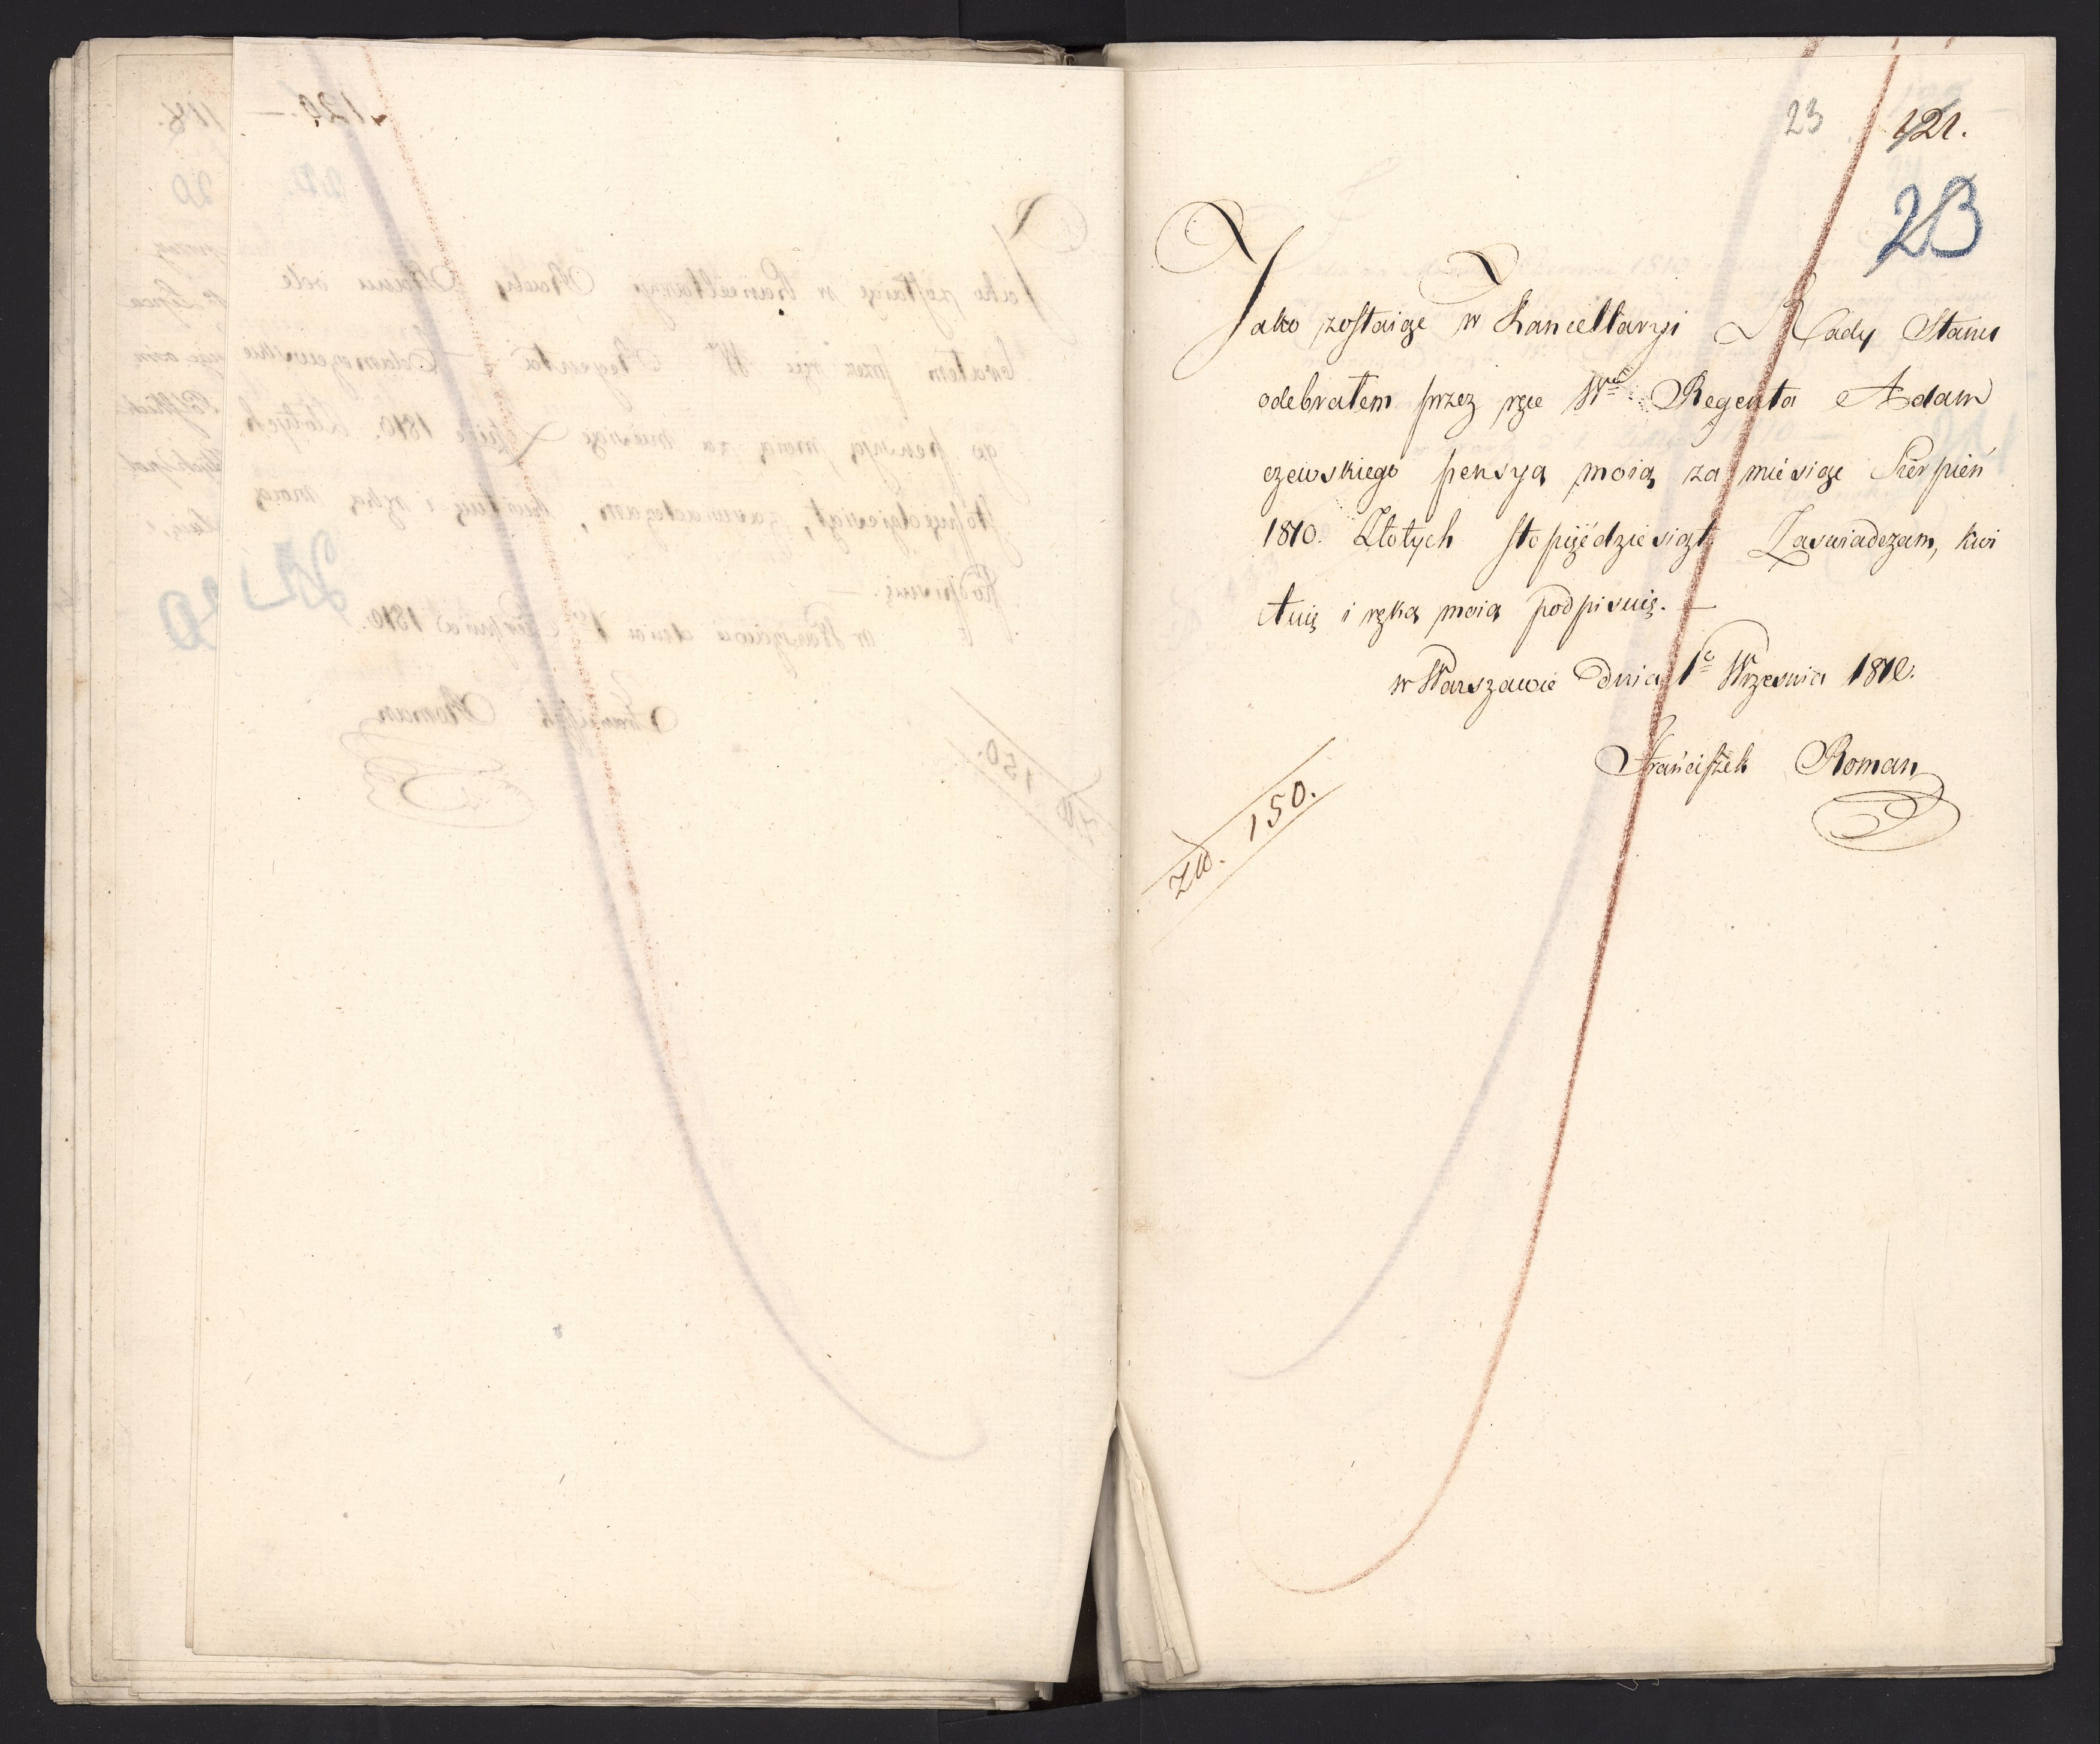 23 121.
23
Jako zostaiąc w Kancellaryi Rady Stanu
odebrałem przez ręce W<sup>o</sup> Regenta Adam
czewskiego pensyą moią za miesiąc Sierpień
1810. Złotych sto pięćdziesiąt Zaswiadczam, kwi
tuię i ręką moią podpisuię. —
w Warszawie dnia 1<sup>o</sup> Wrzesnia 1810.
Franciszek Roman
Złł. 150.